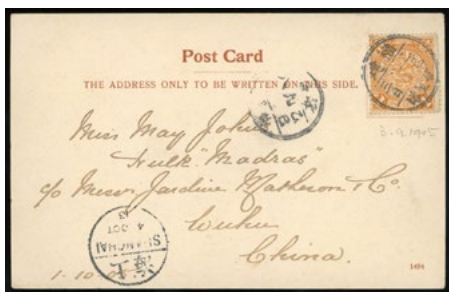 Post Card
THE ADDRESS ONLY TO BE WRITTEN ON THIS SIDE.
3.9.1905
Miss May John
Hulk "Madras"
c/o Messr. Jardine Matheson & Co.
Wuhu
China.
SHANGHAI
4 OCT
上海
1-10
1494